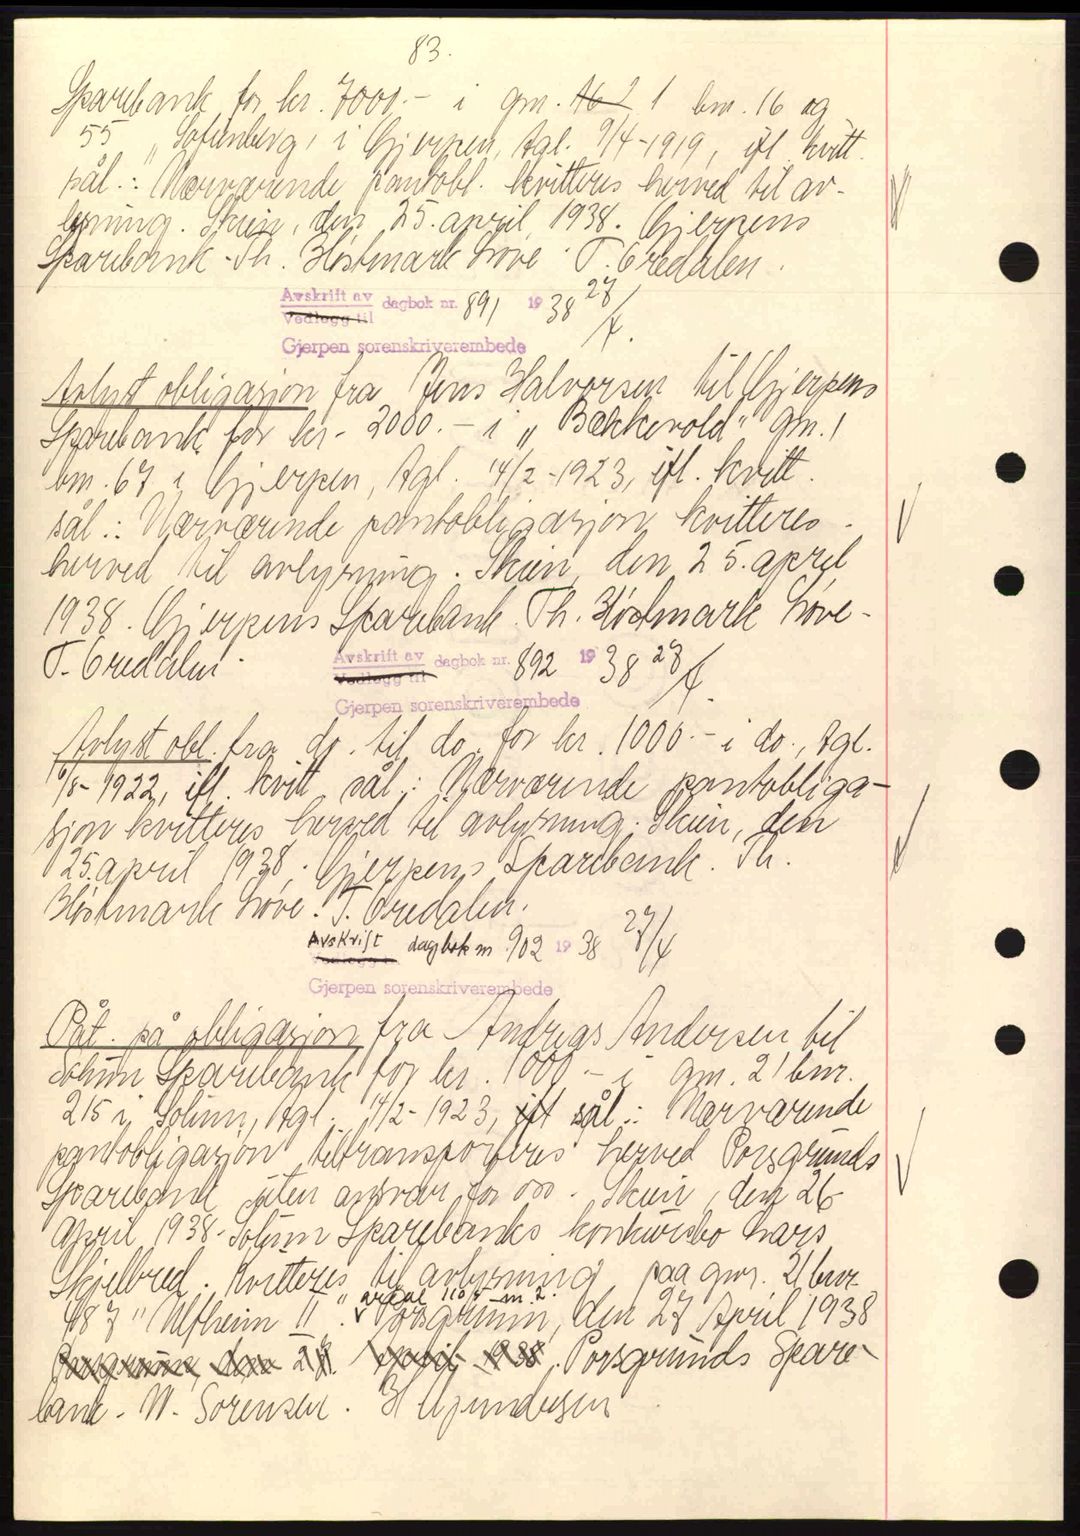 83.
Sparebank for kr. 7000.- i gnr. 1 bnr. 16 og
55 "Sofienberg" i Gjerpen, tgl. 9/4-1919, ifl. kvitt.
sål.: Nærværende pantobl. kvitteres herved til av-
lysning. Skien, den 25. april 1938. Gjerpens
Sparebank - Th. Høstmark Løve T. Gredalen.
Avskrift av
Vedlegg til dagbok nr. 891 1938 27/4.
Gjerpen sorenskriverembede
Avlyst obligasjon fra Jens Halvorsen til Gjerpens
Sparebank for kr. 2000.- i "Bekkevold" gnr. 1
bnr. 67 i Gjerpen, tgl. 14/2-1923, ifl. kvitt.
sål.: Nærværende pantobligasjon kvitteres
herved til avlysning. Skien, den 25. april
1938. Gjerpens Sparebank. Th. Høstmark Løve-
T. Gredalen.
Avskrift av
Vedlegg til dagbok nr. 892 1938 27/4.
Gjerpen sorenskriverembede
Avlyst obl. fra do. til do. for kr. 1000.- i do., tgl.
/8-1922, ifl. kvitt. sål.: Nærværende pantobliga-
sjon kvitteres herved til avlysning. Skien, den
25. april 1938. Gjerpens Sparebank. Th.
Høstmark Løve. T. Gredalen.
Avskrift dagbok nr. 902 1938 27/4
Gjerpen sorenskriverembede
Påt. på obligasjon fra Andreas Andersen til
Solum Sparebank for kr. 1000.- i gnr. 21 bnr.
215 i Solum, tgl. 14/2-1923, ifl sål.: Nærværende
pantobligasjon tiltransporteres herved Porsgrunds
Sparebank uten ansvar for oss. Skien, den 26
April 1938. Solum Sparebanks konkursbo Lars
Skjelbred. Kvitteres til avlysning paa gnr. 21 bnr.
487 "Ulfheim II" areal 110,5 m2. Porsgrunn, den 27 April 1938
Porsgrunn, den 27. April 1938. Porsgrunds Spare-
bank. W. Sørensen. H Agundesen